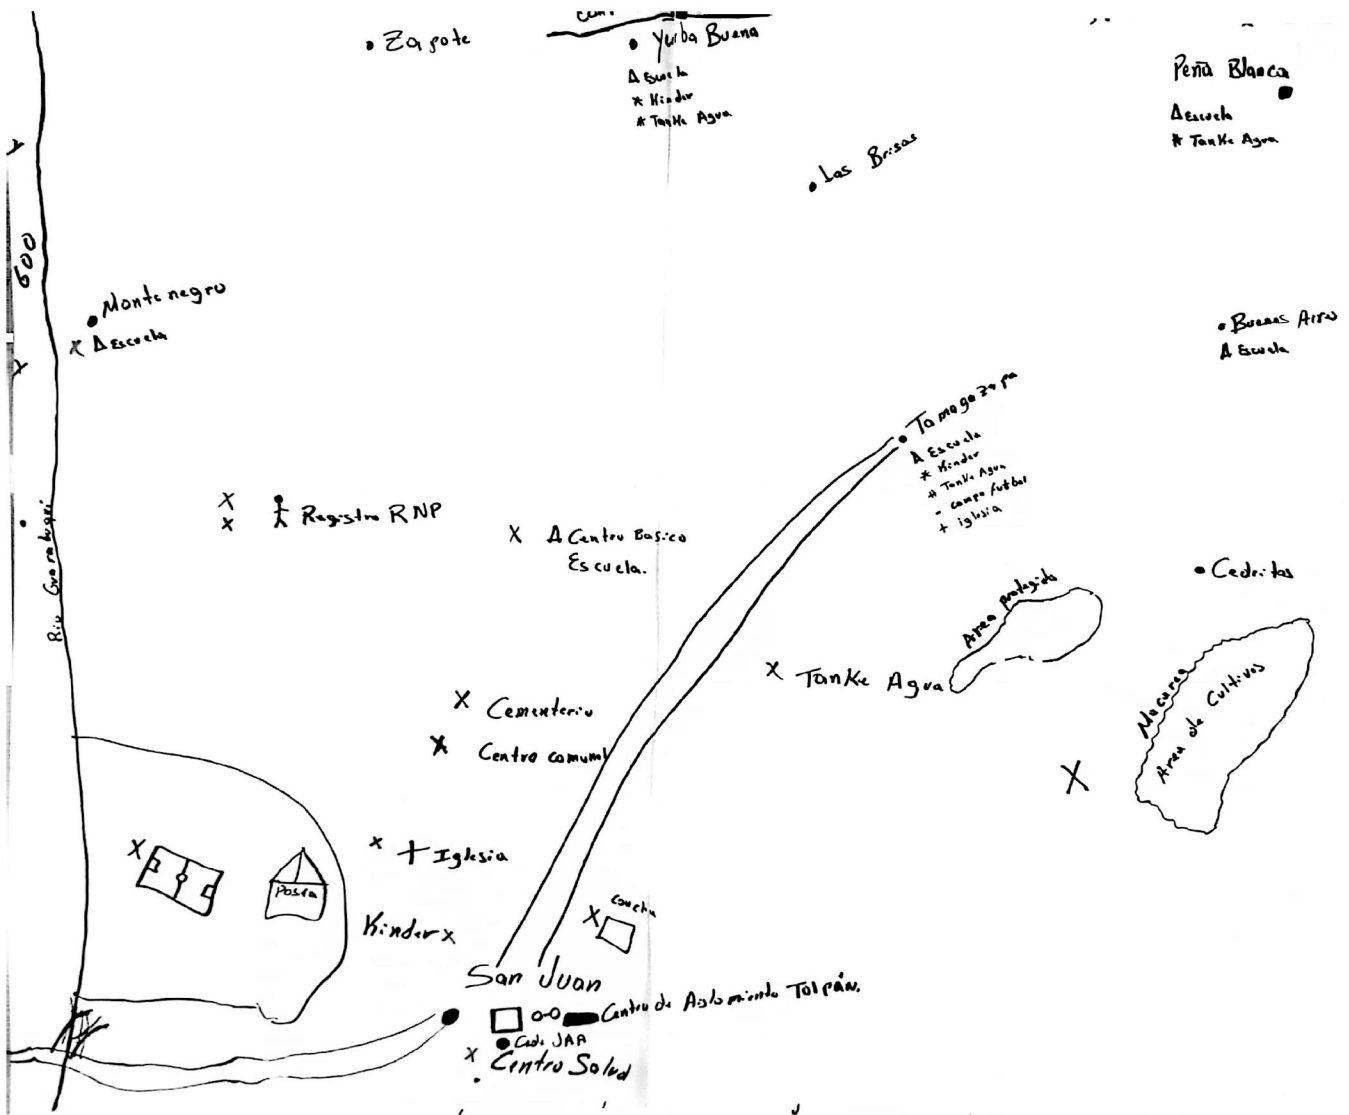 Zapote
Yerba Buena
Δ Escuela
* Kinder
* Tanke Agua
Peña Blanca
Δ Escuela
* Tanke Agua
Las Brisas
600
Montenegro
X Δ Escuela
Buenas Aires
Δ Escuela
Tomagazapa
Δ Escuela
* Kinder
* Tanke Agua
- campo futbol
+ iglesia
X
X
Registro RNP
X Δ Centro Basico
Escuela.
Rio
Area protegida
Cedritos
X Tanke Agua
Area de Cultivos
X
X Cementerio
X Centro comunal
X + Iglesia
X
Posta
Kinder X
X
San Juan
Centro de Aislamiento Tolpán.
Cede JAA
X Centro Salud